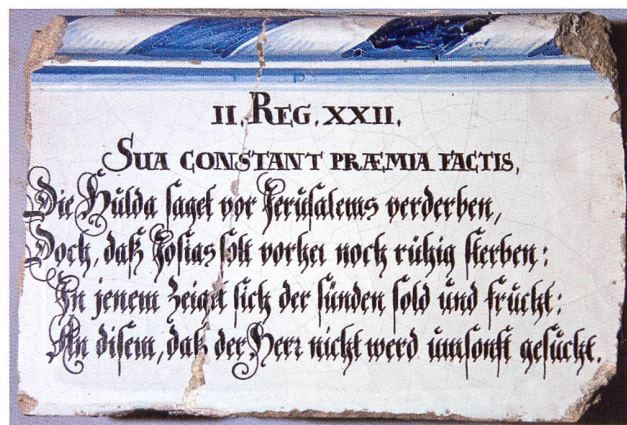 II. REG. XXII.
SUA CONSTANT PRÆMIA FACTIS,
Die Hulda saget vor Jerusalems verderben,
Doch, daß Josias soll vorher noch rühig sterben:
In jenem zeiget sich der sünden sold und frücht:
An disem, daß der Herr nicht werd ümsonst gesücht.